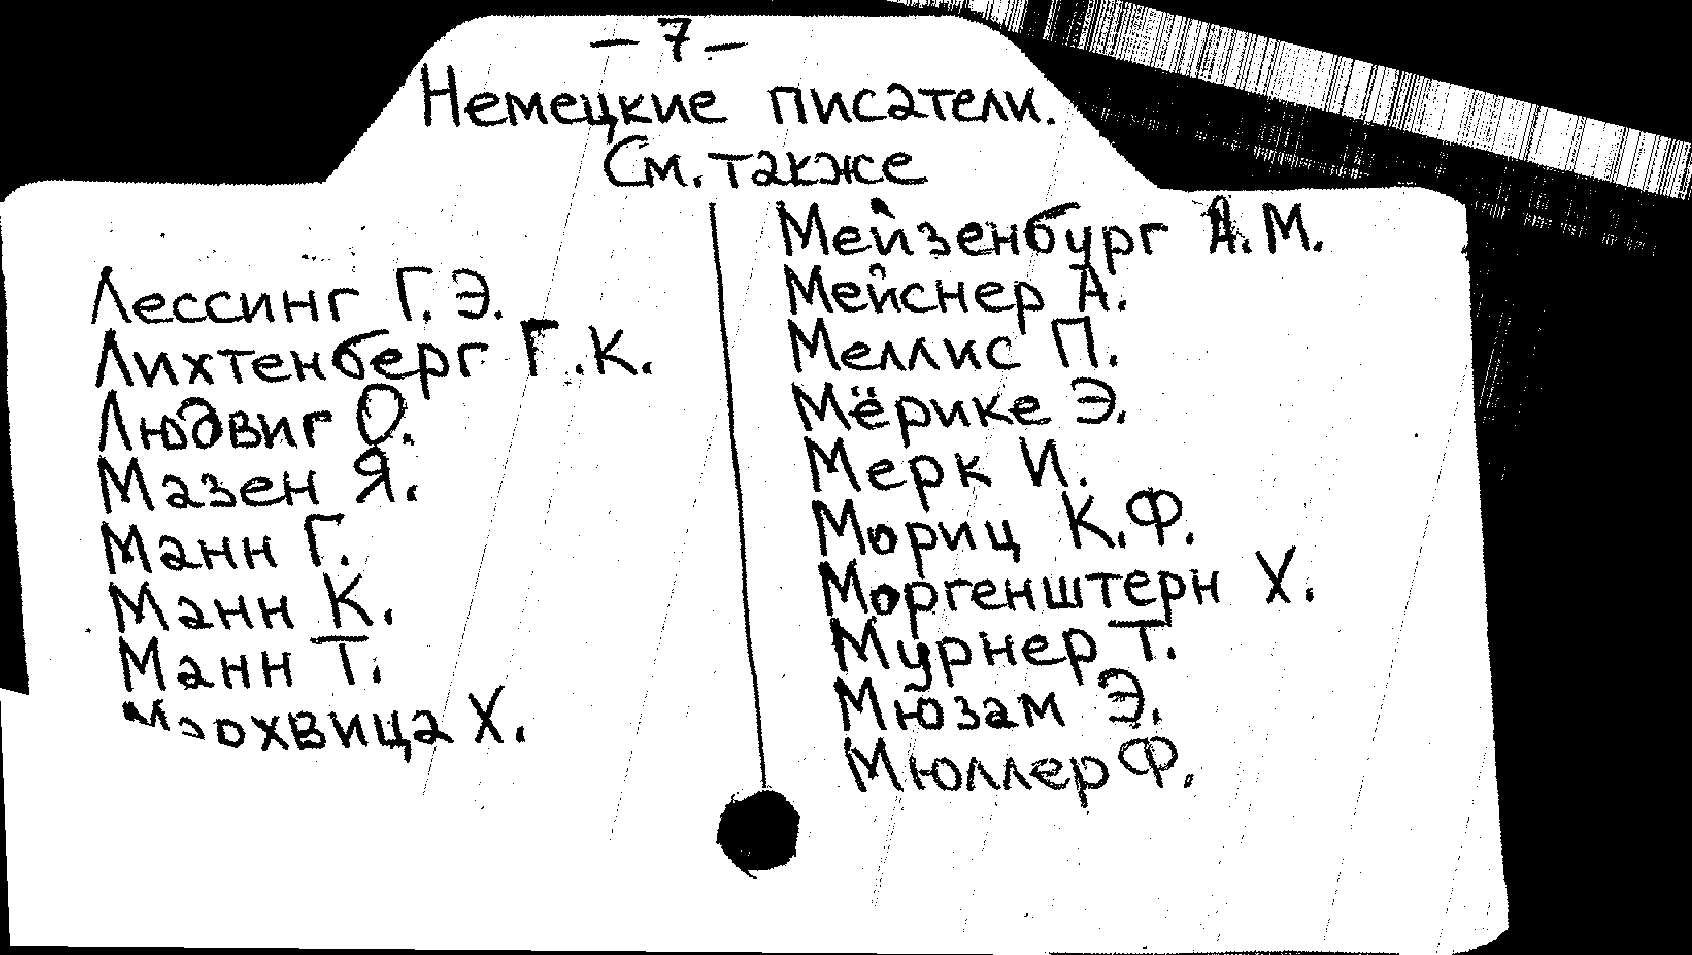 — 7 —
Немецкие писатели.
См. также
Лессинг Г. Э.
Лихтенберг Г. К.
Людвиг О.
Мазен Я.
Манн Г.
Манн К.
Манн Т.
Мархвица Х.
Мейзенбург А. М.
Мейснер А.
Меллис П.
Мёрике Э.
Мерк И.
Мориц К. Ф.
Моргенштерн Х.
Мурнер Т.
Мюзам Э.
Мюллер Ф.